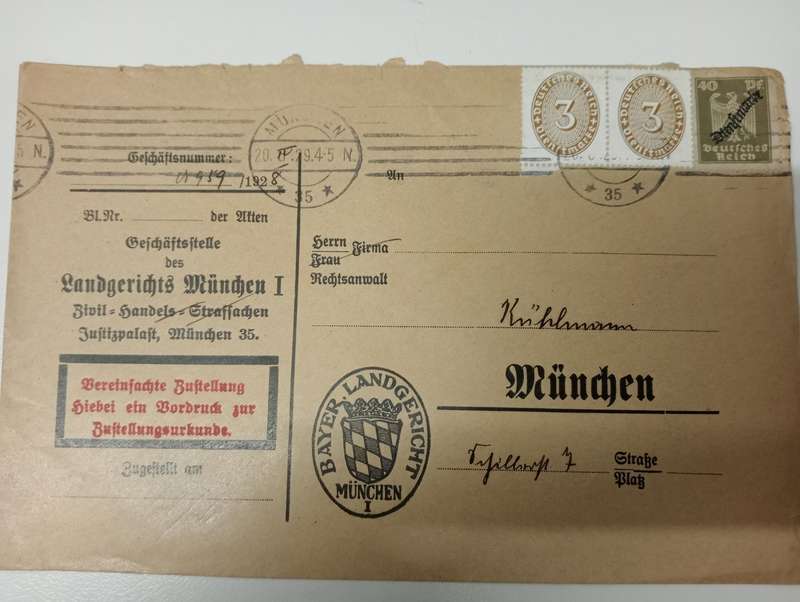 Deutsches Reich
3
Dienstmarke
Deutsches Reich
3
Dienstmarke
40 Pf
Dienstmarke
Deutsches
Reich
MÜNCHEN
29.4-5 N.
* 35 *
* 35 *
Geschäftsnummer:
/1928
An
Bl.Nr. der Akten
Geschäftsstelle
des
Landgerichts München I
Zivil-Handels-Strafsachen
Justizpalast, München 35.
Vereinfachte Zustellung
Hiebei ein Vordruck zur
Zustellungsurkunde.
Zugestellt am
Herrn Firma
Frau
Rechtsanwalt
Kühlmann
München
Schillerst 7 Straße
Platz
BAYER. LANDGERICHT
MÜNCHEN
I